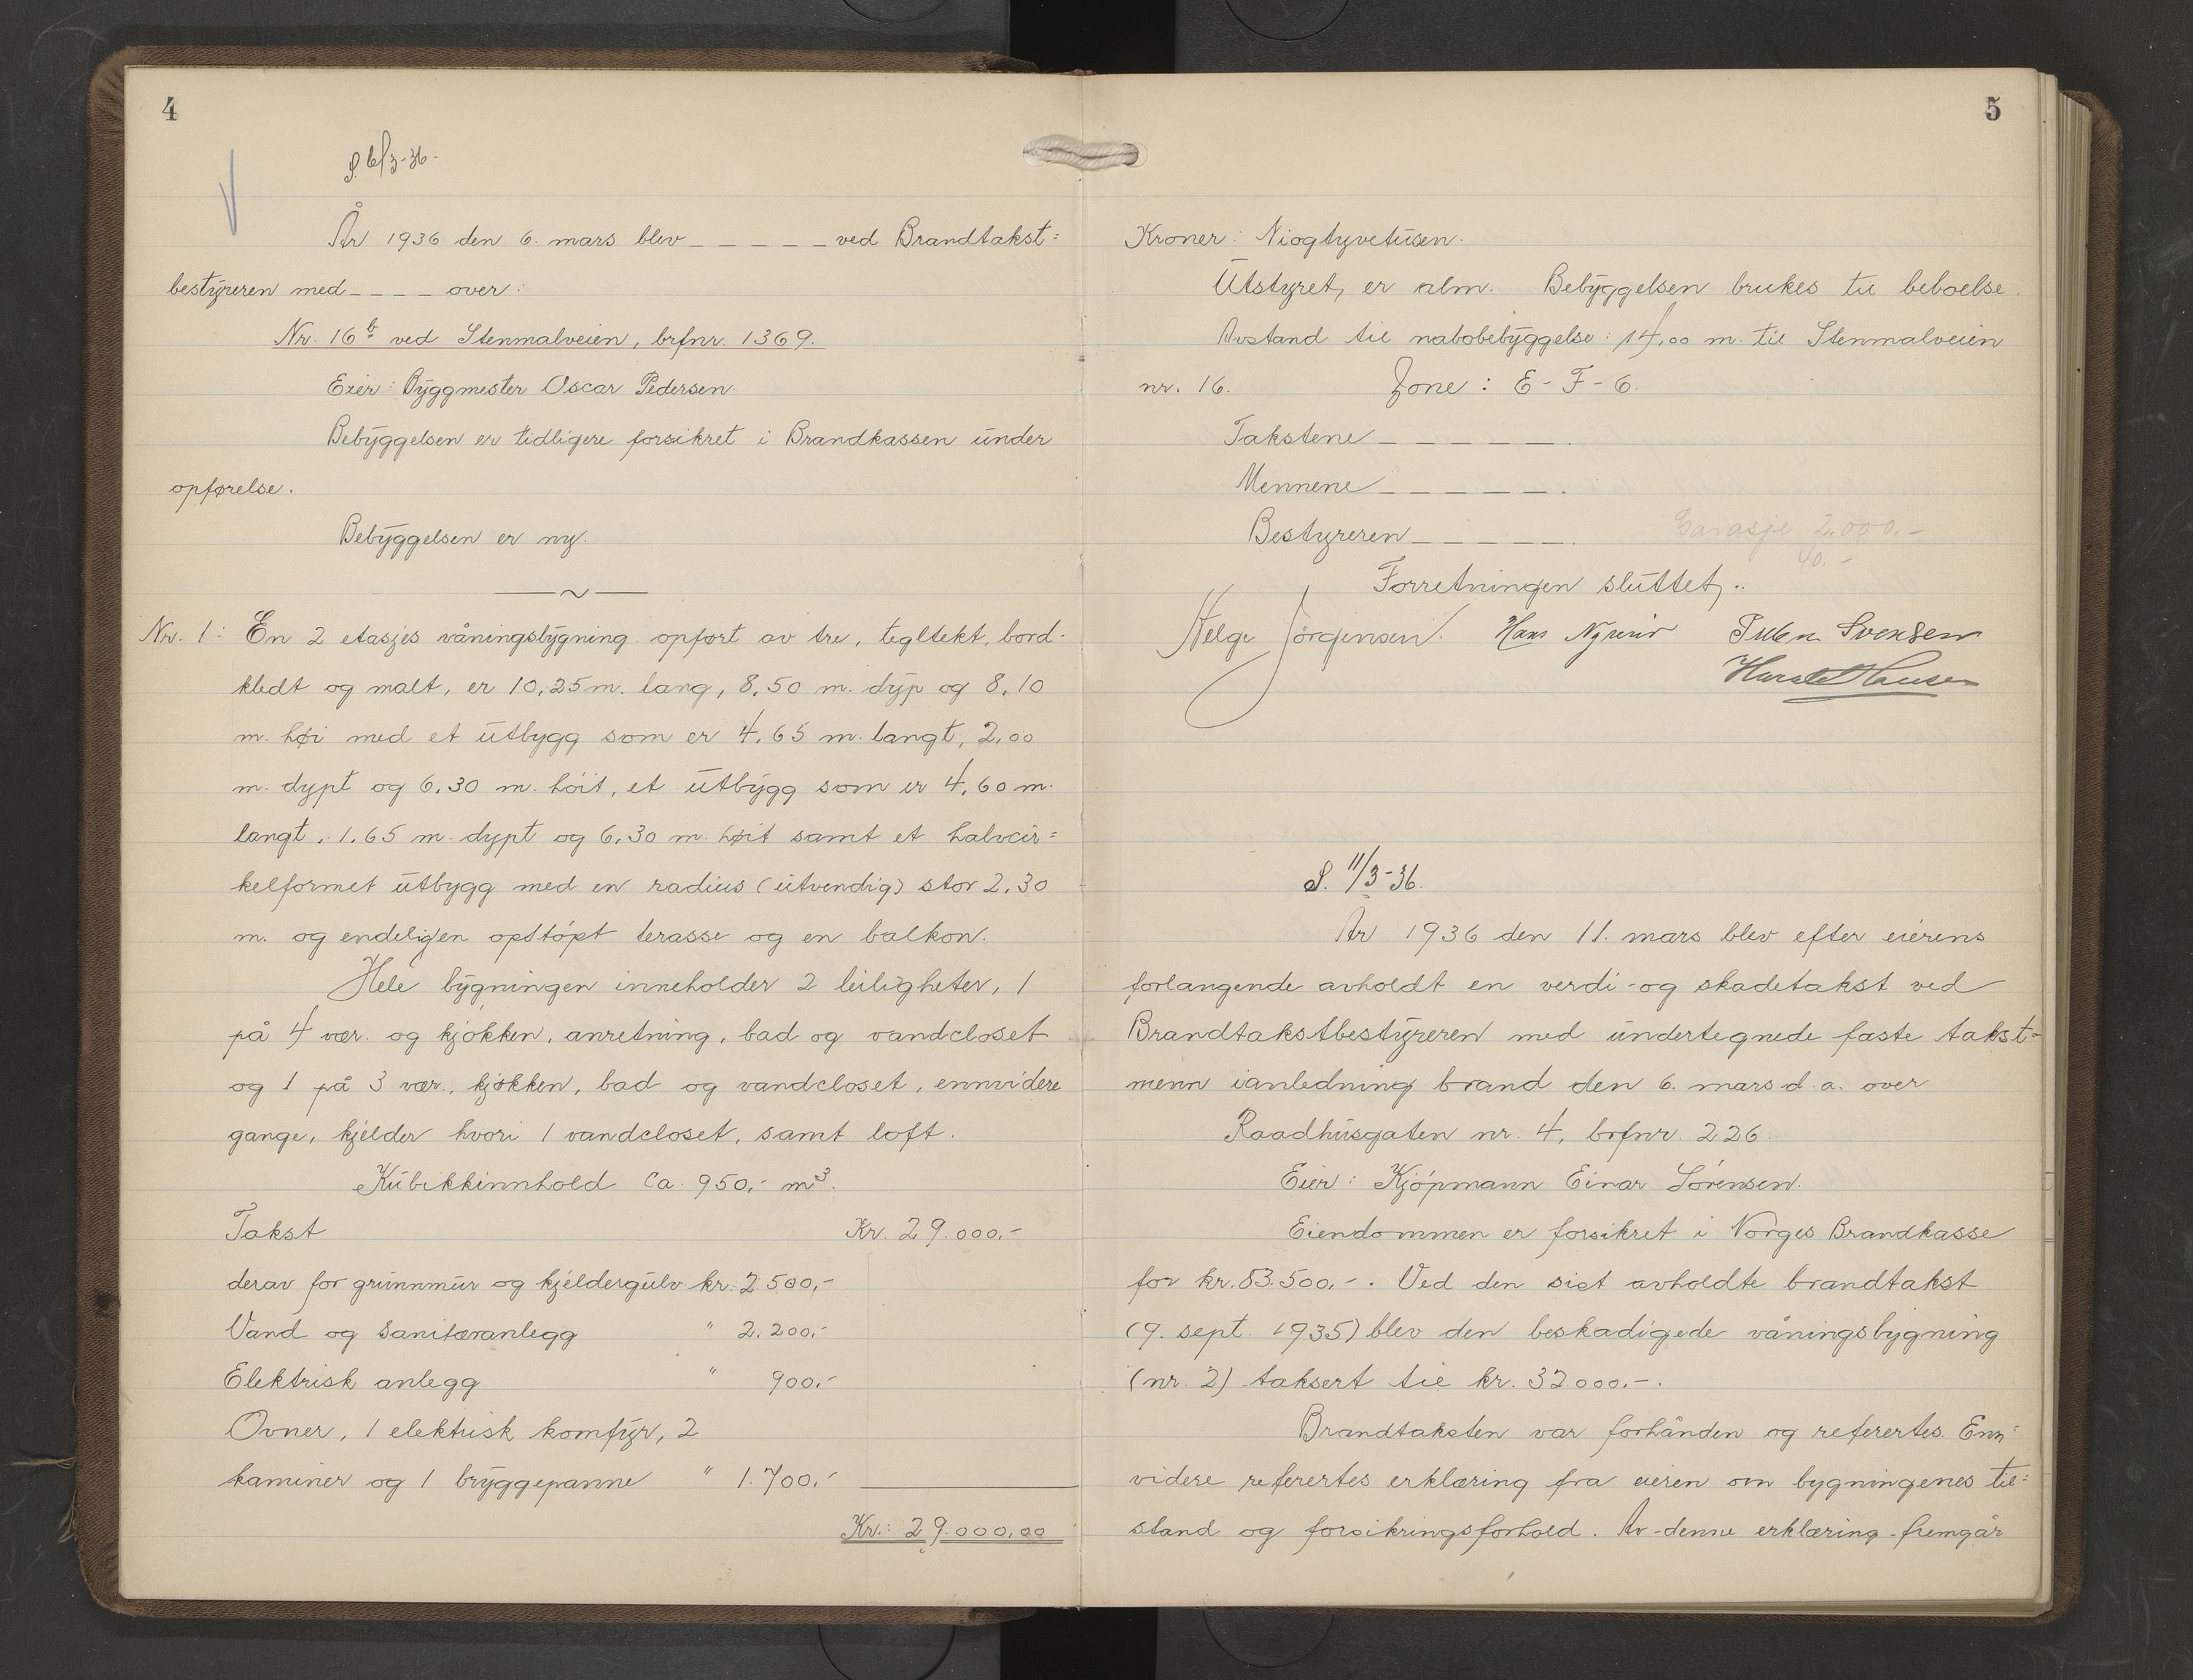 4
S. 6/3-36.
År 1936 den 6. mars blev _ _ _ _ _ ved Brandtakst=
bestyreren med _ _ _ _ over:
Nr. 16b ved Stenmalveien, brfnr. 1369.
Eier: Byggmester Oscar Pedersen.
Bebyggelsen er tidligere forsikret i Brandkassen under
opførelse.
Bebyggelsen er ny.
Nr. 1: En 2 etasjes våningsbygning opført av tre, tegltekt, bord-
kledt og malt, er 10,25 m. lang, 8,50 m. dyp og 8,10
m. høi med et utbygg som er 4,65 m. langt, 2,00
m. dypt og 6,30 m. höit, et utbygg som er 4,60 m.
langt, 1,65 m. dypt og 6,30 m. høit samt et halvcir=
kelformet utbygg med en radius (utvendig) stor 2,30
m. og endeligen opstöpt terasse og en balkon.
Hele bygningen inneholder 2 leiligheter, 1
på 4 vær. og kjökken, anretning, bad og vandcloset
og 1 på 3 vær., kjøkken, bad og vandcloset, ennvidere
gange, kjelder hvori 1 vandcloset, samt loft.
Kubikkinnhold ca. 950,- m³.
Takst Kr. 29.000,-
derav for grunnmur og kjeldergulv kr. 2.500,-
Vand og sanitæranlegg " 2.200,-
Elektrisk anlegg " 900,-
Ovner, 1 elektrisk komfyr, 2
kaminer og 1 bryggepanne " 1.700,-
Kr.: 29.000,00
5
Kroner: Niogtyvetusen.
Utstyret er alm. Bebyggelsen brukes til beboelse.
Avstand til nabobebyggelse: 14,00 m. til Stenmalveien
nr. 16. Zone: E-F-6.
Takstene _ _ _ _ _.
Mennene _ _ _ _ _.
Bestyreren _ _ _ _ _. Garasje 2.000.-
40.-
Forretningen sluttet.
Helge Jörgensen. Hans Svensen
Harald Hansen
S. 11/3-36.
År 1936 den 11. mars blev efter eierens
forlangende avholdt en verdi-og skadetakst ved
Brandtakstbestyreren med undertegnede faste takst-
menn ianledning brand den 6. mars d.a. over
Raadhusgaten nr. 4, brfnr. 226.
Eier: Kjöpmann Einar Sörensen.
Eiendommen er forsikret i Norges Brandkasse
for kr. 53.500,-. Ved den sist avholdte brandtakst
(9. sept. 1935) blev den beskadigede våningsbygning
(nr. 2) taksert til kr. 32.000,-.
Brandtaksten var forhånden og refertes. Enn=
videre refertes erklæring fra eieren om bygningenes til=
stand og forsikringsforhold. Av denne erklæring fremgår